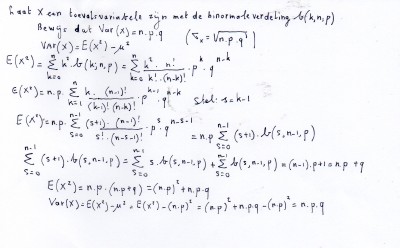 Laat X een toevalsvariabele zijn met de binormale verdeling b(k,n,p)
Bewijs dat Var(X) = n.p.q (σₓ = √n.p.q)
VAR(X) = E(X²) - μ²
E(X²) = Σ_{k=0}^{n} k².b(k;n,p) = Σ_{k=0}^{n} k².n! / k!.(n-k)! . p^k q^{n-k}
E(X²) = n.p. Σ_{k=1}^{n} k.(n-1)! / (k-1)!(n-k)! p^{k-1}.q^{n-k} Stel: s = k-1
E(X²) = n.p. Σ_{s=0}^{n-1} (s+1).(n-1)! / s!.(n-s-1)! p^s.q^{n-s-1} = n.p Σ_{s=0}^{n-1} (s+1).b(s,n-1,p)
Σ_{s=0}^{n-1} (s+1).b(s,n-1,p) = Σ_{s=0}^{n-1} s.b(s,n-1,p) + Σ_{s=0}^{n-1} b(s,n-1,p) = (n-1).p+1 = n.p+q
E(X²) = n.p.(n.p+q) = (n.p)² + n.p.q
Var(X) = E(X²) - μ² = E(X²) - (n.p)² = (n.p)² + n.p.q - (n.p)² = n.p.q